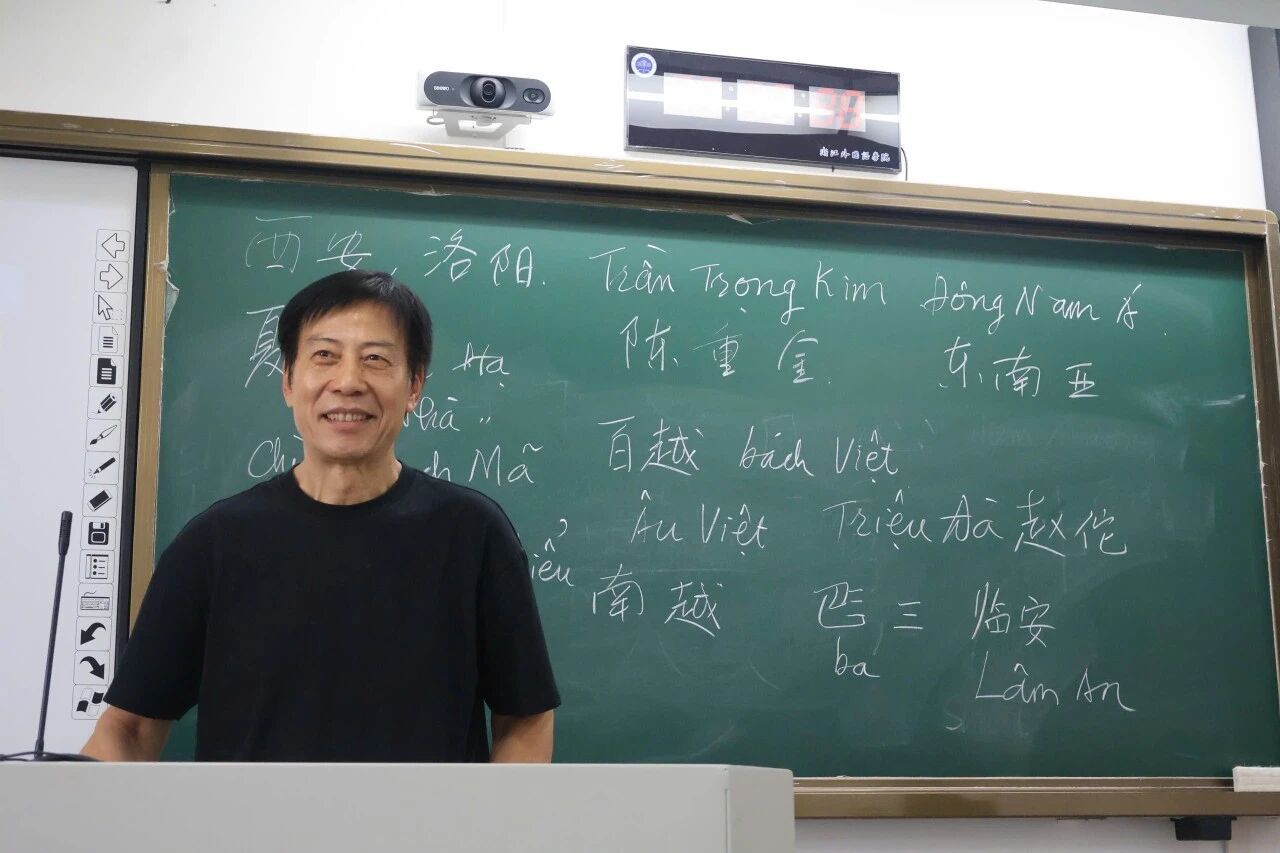 38
浙江外国语学院
西安、洛阳. Trần Trọng Kim Đông Nam Á.
夏 Hạ 陈重金. 东南亚
Nhà "
Mã 百越 bách Việt
Âu Việt Triệu Đà 赵佗
南越 三 临安
ba Lâm An